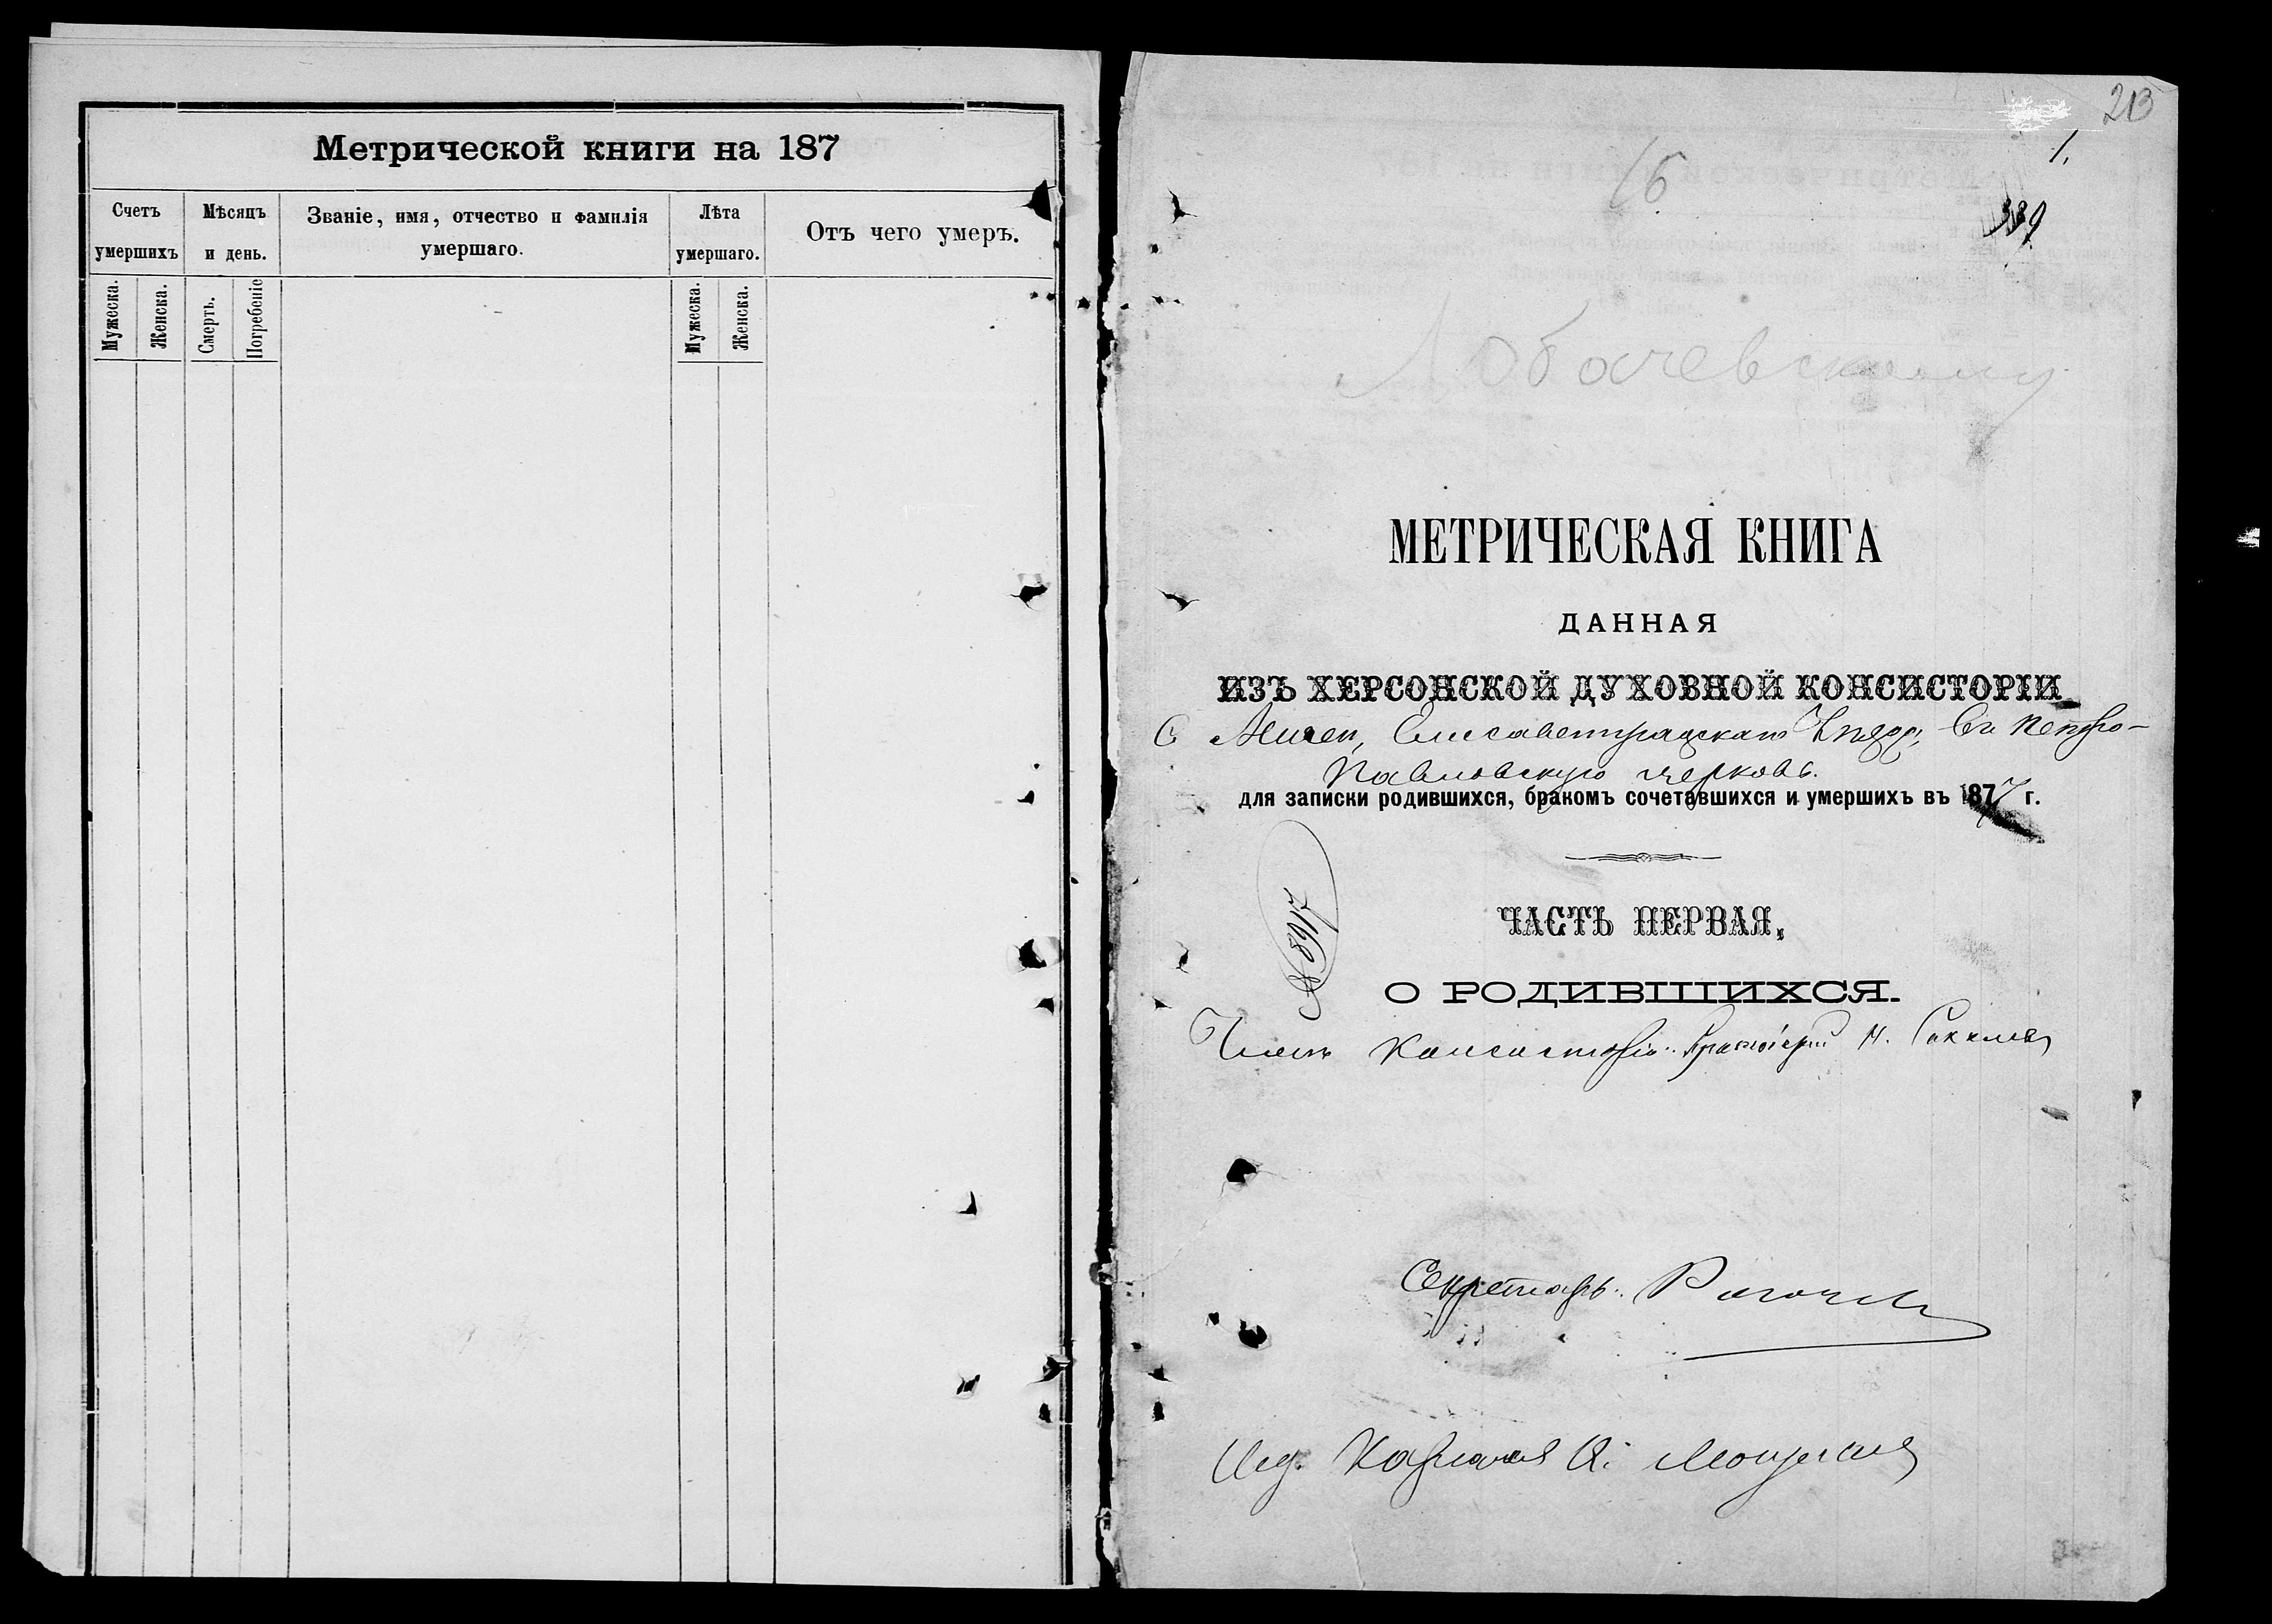 Метрической книги на 187
Счетъ умершихъ
Мѣсяцъ и день.
Званіе, имя, отчество и фамилія умершаго.
Лѣта умершаго.
Отъ чего умеръ.
Мужеска.
Женска.
Смерть.
Погребеніе
Мужеска.
Женска.
213
1.
16
339
Лобачевскому
МЕТРИЧЕСКАЯ КНИГА
ДАННАЯ
ИЗЪ ХЕРСОНСКОЙ ДУХОВНОЙ КОНСИСТОРІИ
С Елисаветградскаго уѣзда, въ Петро-
Павловскую церковь.
для записки родившихся, бракомъ сочетавшихся и умершихъ въ 1877 г.
№ 8917
ЧАСТЬ ПЕРВАЯ,
О РОДИВШИХСЯ.
Членъ Консисторіи Протоіерей М.
Секретарь